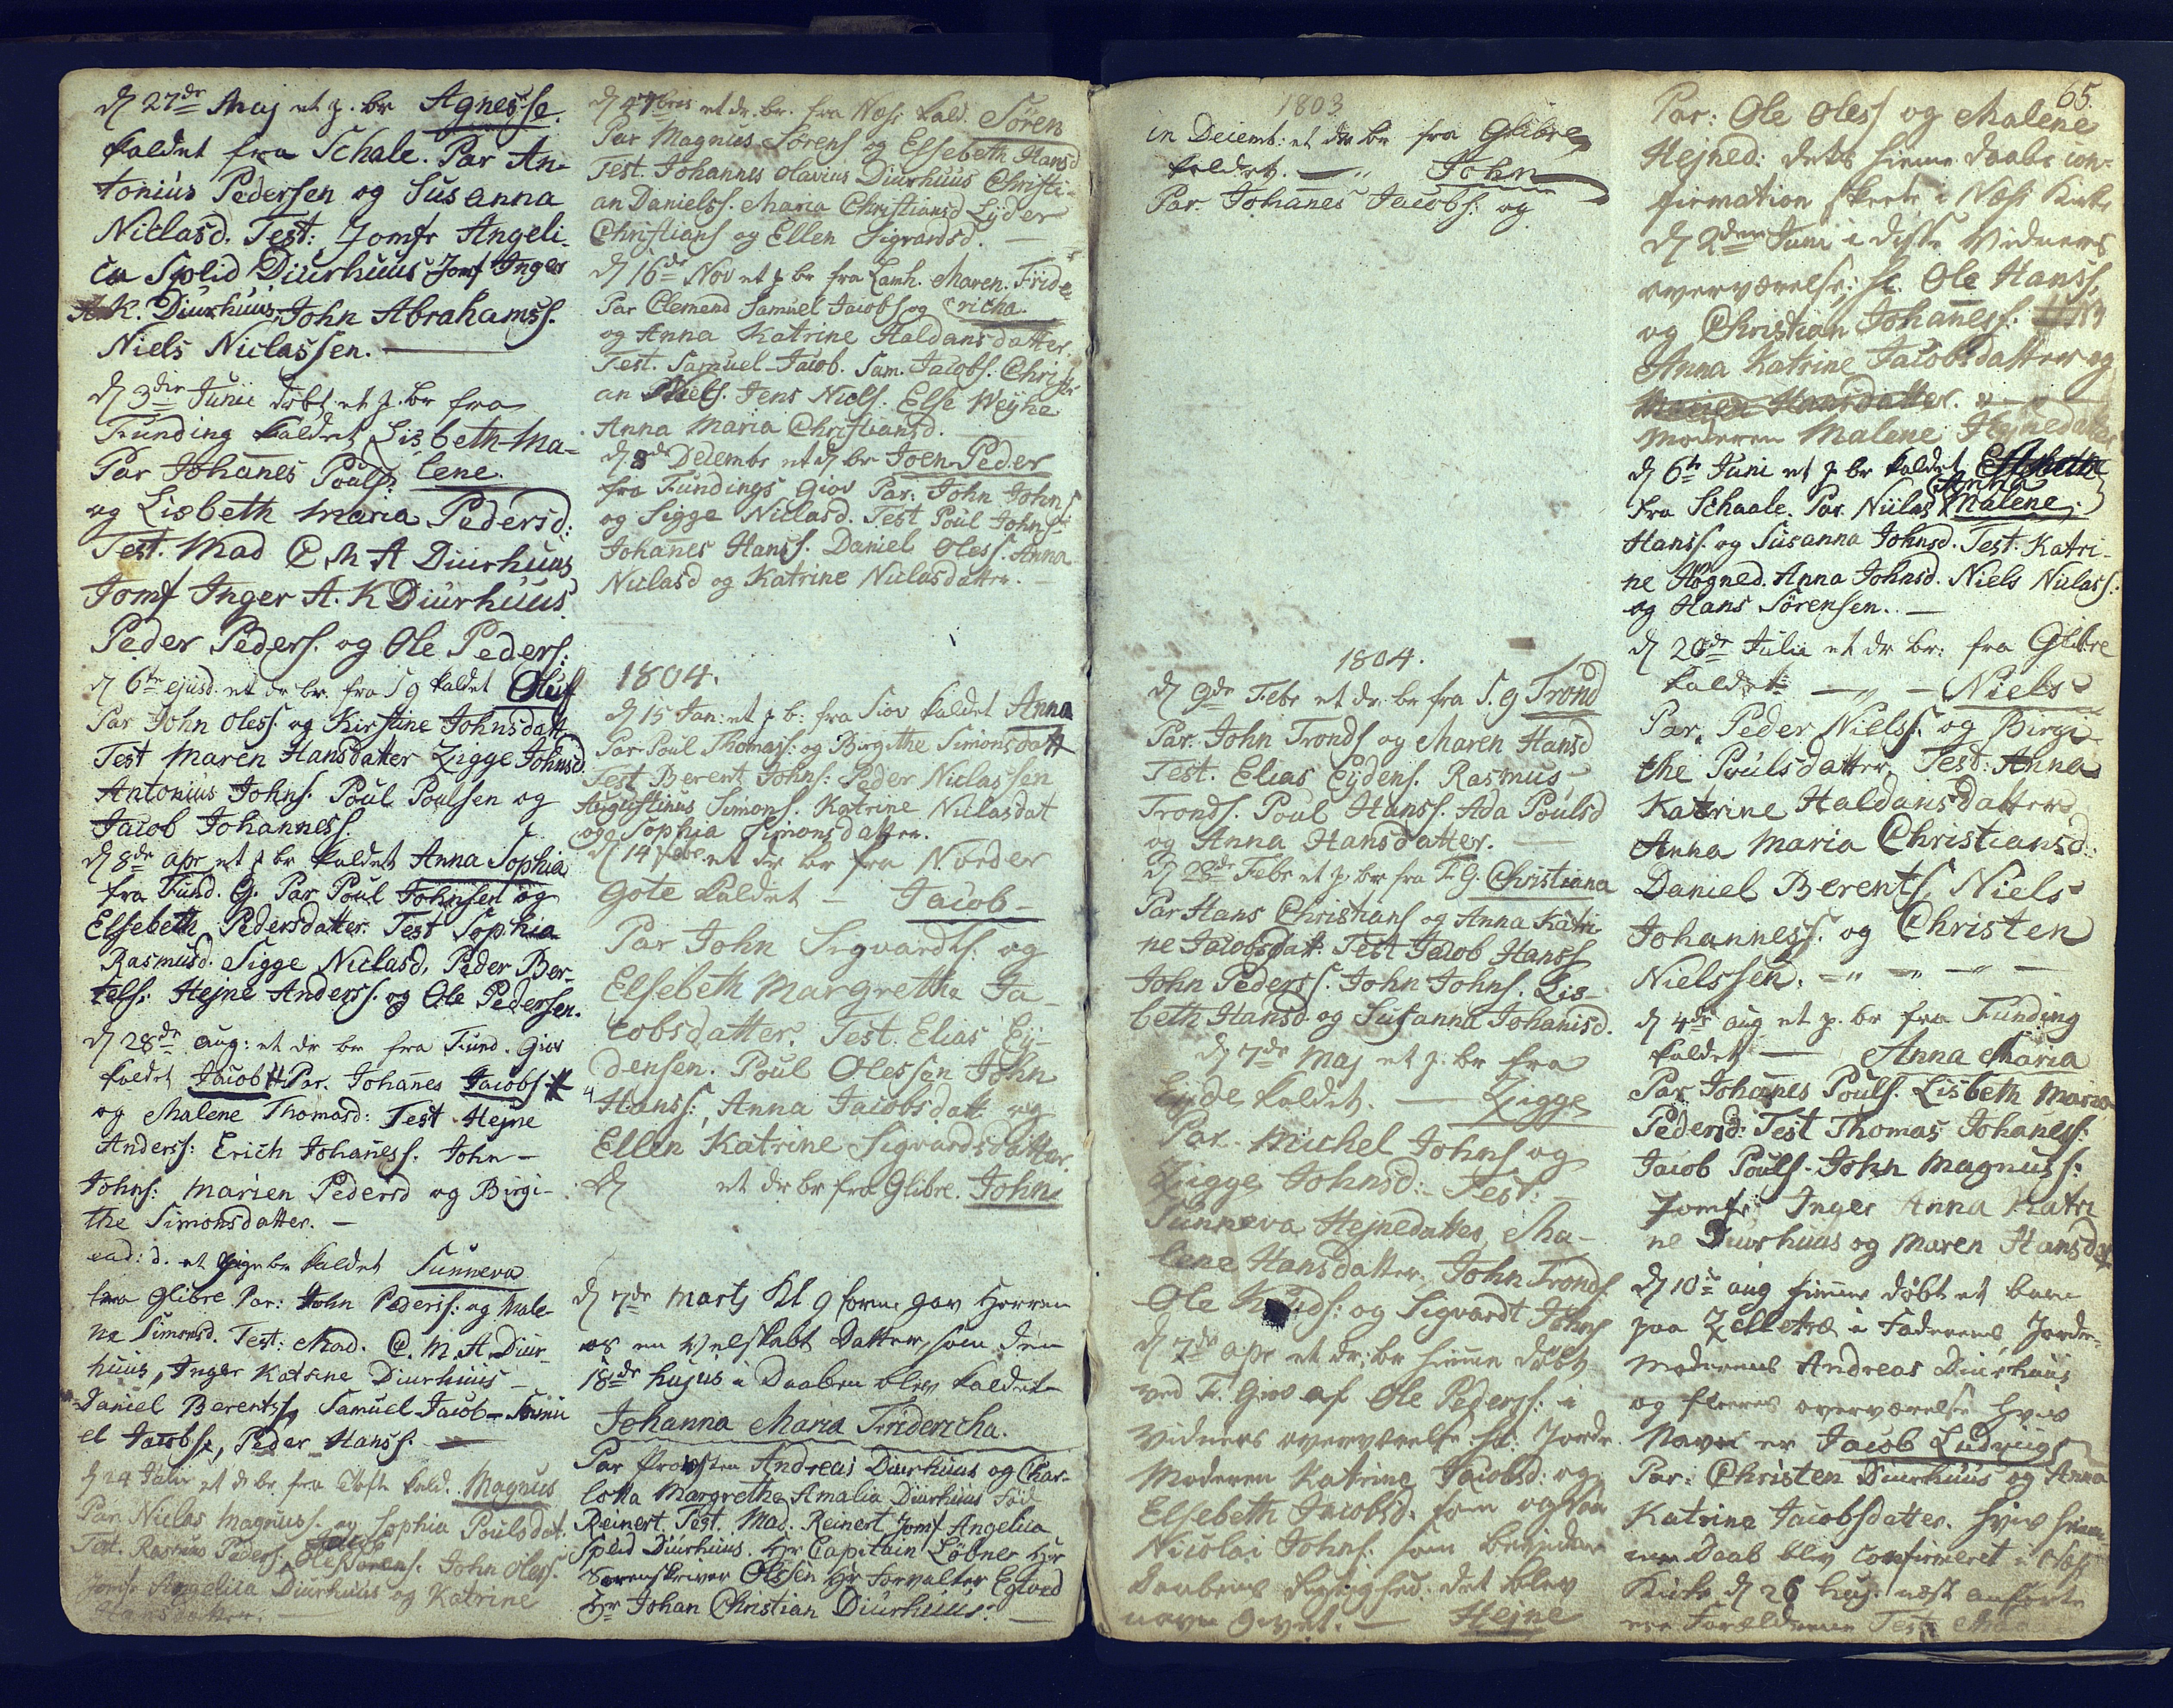 d 27de Maj et p. br Agnesse
kaldet fra Schale. Par An-
tonius Pedersen og Susanna
Niclasd. Test: Jomfr Angeli-
ca Splid Diurhuus Jomf Inger
A.K. Diurhuus, John Abrahamss.
Niels Niclassen.
d 3die Junii døbt et p. br fra
Funding kaldet Lisbeth-Ma-
Par Johanes Pouls. lene.
og Lisbeth Maria Pedersd:
Test. Mad C M A Diurhuus
Jomf Inger A. K Diurhuus
Peder Peders. og Ole Peders:
d 6te ejusd. et dr br. fra S g kaldet Oluf
Par John Oless. og Kirstine Johnsdatt
Test Maren Hansdatter Zigge Johnsd
Antonius Johns. Poul Poulsen og
Jacob Johanness.
d 8de apr et p br kaldet Anna Sophia
fra Fund. G. Par Poul Johnsen og
Elsebeth Pedersdatter. Test Sophia
Rasmusd. Sigge Niclasd, Peder Ber-
tels: Hejne Anderss. og Ole Pedersen.
d 28de aug: et dr br fra Fund. Giov
kaldet Jacob Par. Johanes Jacobs
og Malene Thomasd: Test Hejne
Anderss: Erich Johaness. John
Johns: Marien Pedersd og Birgi-
the Simonsdatter.
ead: d. et pige br kaldet Sunneva
fra Glibre Par: John Peders: og Male-
na Simonsd. Test: Mad. C. M. A. Diur-
huus, Inger Katrine Diurhuus
Daniel Berents, Samuel Jacob - Samu
el Jacobs:, Peder Hanss.
d 24 Julii et dr br. fra Toft kald. Magnus
Par Niclas Magnuss. og Sophia Poulsdat.
Test. Rasmus Peders, Ole Sørens. John Oless.
Jomfr Angelica Diurhuus og Katrine
Hansdatter.
d 4 7bris et dr. br. fra Næss kald. Søren
Par Magnus Sørens og Elsebeth Hansd
Test. Johannes Olavius Diurhuus Christi-
an Danielss. Maria Christiansd Lyder
Christians og Ellen Sigvardsd.
d 16de Nov et p br fra Lamh. Maren Fride-
Par Clemend Samuel Jacobs og richa
og Anna Katrine Haldansdatter.
Test. Samuel-Jacob. Sam. Jacobs. Christi
an Niels. Jens Niels. Else Weyhe
Anna Maria Christiansd.
d 8de Decembr et d br Joen-Peder
fra Fundings Giov Par: John Johns
og Sigge Niclasd. Test Poul Johns
Johanes Hanss. Daniel Oless. Anna
Niclasd og Katrine Niclasdatter.
1804.
d 15 Jan: et p b: fra Giov kaldet Anna
Par Poul Thomass: og Birgithe Simonsdatt
Test Berent Johns: Peder Niclassen
Augustinus Simons. Katrine Niclasdat
og Sophia Simonsdatter.
d 14 Febr et dr br fra Norder
Gote kaldet - Jacob -
Par John Sigvardts. og
Elsebeth Margretha Ja-
cobsdatter. Test. Elias Ey-
densen. Poul Olessen John
Hanss: Anna Jacobsdatt: og
Ellen Katrine Sigvardsdatter.
d et dr br fra Glibre. John
d 7de Marts Kl 9 form gav Herren
os en velskabt Datter, som den
18de hujus i Daaben blev kaldet
Johanna Maria Friderricha.
Par Provsten Andreas Diurhuus og Char-
lotta Margretha Amalia Diurhuus Fød
Reinert. Test. Mad. Reinert Jomf Angelica
Splid Diurhuus. Hr Capitain Löbner Hr
Sorenskriver Olssen Hr Forvalter Egtved
Hr Johan Christian Diurhuus.
1803
in Decemb: et dr br fra Glibre
kaldet. - John
Par. Johanes Jacobs: og
1804.
d 9de Febr et dr. br fra S. g Trond
Par. John Tronds og Maren Hansd
Test. Elias Eydens. Rasmus
Tronds. Poul Hanss. Ada Poulsd
og Anna Hansdatter.
d 28de Febr et p. br fra F.G. Christiana
Par Hans Christians og Anna Katri-
ne Jacobsdatt. Test Jacob Hanss
John Pederss. John Johns. Lis-
beth Hansd. og Susanna Johanisd.
d 7de Maj et p. br fra
Eyde kaldet. - Zigge
Par. Michel Johns og
Zigge Johnsd: Test:
Sunneva Hejnedatter, Ma-
lene Hansdatter. John Tronds.
Ole Knuds: og Sigvardt Johns
d 7de apr et dr: br hieme døbt
ved F. Giov af Ole Peders: i
Vidners overværelse sc: Jorde
Moderen Katrine Jacobsd: og
Elsebeth Jacobsd. som ogsaa
Nicolai Johns: som bevidner
Daabens Rigtighed. det blev
navn givet. - Hejne
65.
Par: Ole Oless og Malene
Hejned: dets hieme daabs con-
firmation skeete i Næss Kirke
d 2den Juni i disse Vidners
overværelse; sc. Ole Hanss.
og Christian Johaness.
Anna Katrine Jacobsdatter og
Marien Hansdatter.
Moderen Malene Hejnedatter
d 6te Juni et p br kaldet
Anna
fra Schaale. Par. Niclas Malene
Hanss. og Susanna Johnsd. Test. Katri-
ne Høgned. Anna Johnsd. Niels Niclass:
og Hans Sørensen.
d 20de Julii et dr br: fra Glibre
kaldet - Niels
Par. Peder Nielss. og Birgi-
the Poulsdatter. Test: Anna
Katrine Haldansdatter
Anna Maria Christiansd.
Daniel Berents Niels
Johanness. og Christen
Nielssen.
d 4de aug et p. br fra Funding
kaldet - Anna Maria
Par Johanes Pouls. Lisbeth Maria
Pedersd: Test Thomas Johaness:
Jacob Pouls. John Magnuss:
Jomfr Inger Anna Katri
ne Diurhuus og Maren Hansdatt
d 10de aug hieme døbt et barn
paa Zelletræ i Faderens Jorde-
moderens Andreas Diurhuus
og fleeres overværelse hvis
Navn er Jacob Ludvig
Par: Christen Diurhuus og Anna
Katrina Jacobsdatter. hvis hieme
Daab blev confirmeret i Næss
Kirke d 26 huj: næst anførte
ere Forældrene Test